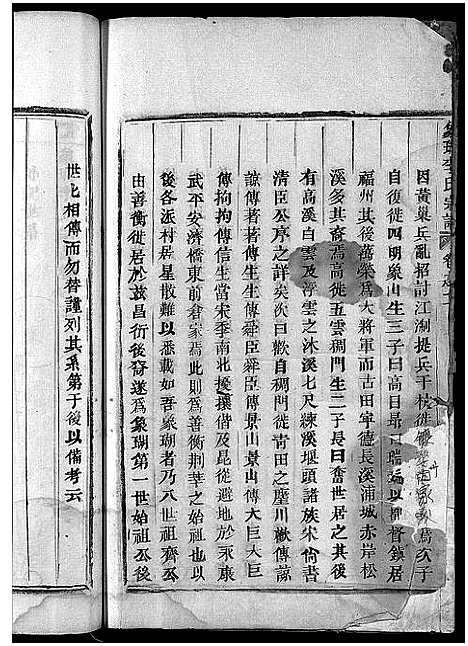 因黃巢兵亂招討江湖提兵于枝徙
自復徙四明象山生三子曰高日昂曰瑞以押督鎮居
福州其後萬榮爲大將軍而古田寧德長溪浦城赤岸松
溪多其裔焉高徙五雲稠門生二子長曰奮世居之其後
有高溪白雲及浮雲之沐溪七尺練溪堰頭諸族宋尙書
清臣公序之詳矣次曰歡自稠門徙靑田之壟川歡傳諒
諒傳著著傳舜臣舜臣傳景山景山傳大巨大巨
傳拘拘傳信生當宋季南北擾攘偕及昆從避地於永康
武平安濟橋東前倉家焉此則爲善衡荆華之始祖也
後各派村居星散難以悉載如吾象瑚者乃八世祖齊公
由善衡徙居於茲昌衍後裔遂爲象瑚第一世始祖公後
世匕相傳而勿替謹列其系第于後以備考云